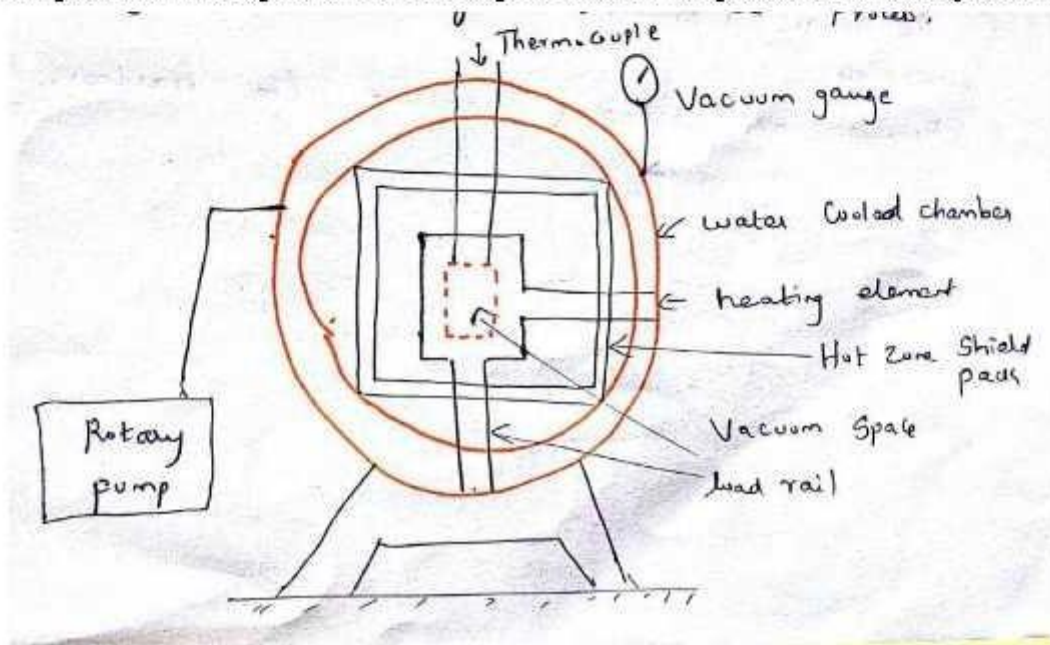 Process.
Thermocouple
Vacuum gauge
water Cooled chamber
heating element
Hot Zone Shield
packs
Vacuum Space
load rail
Rotary
pump